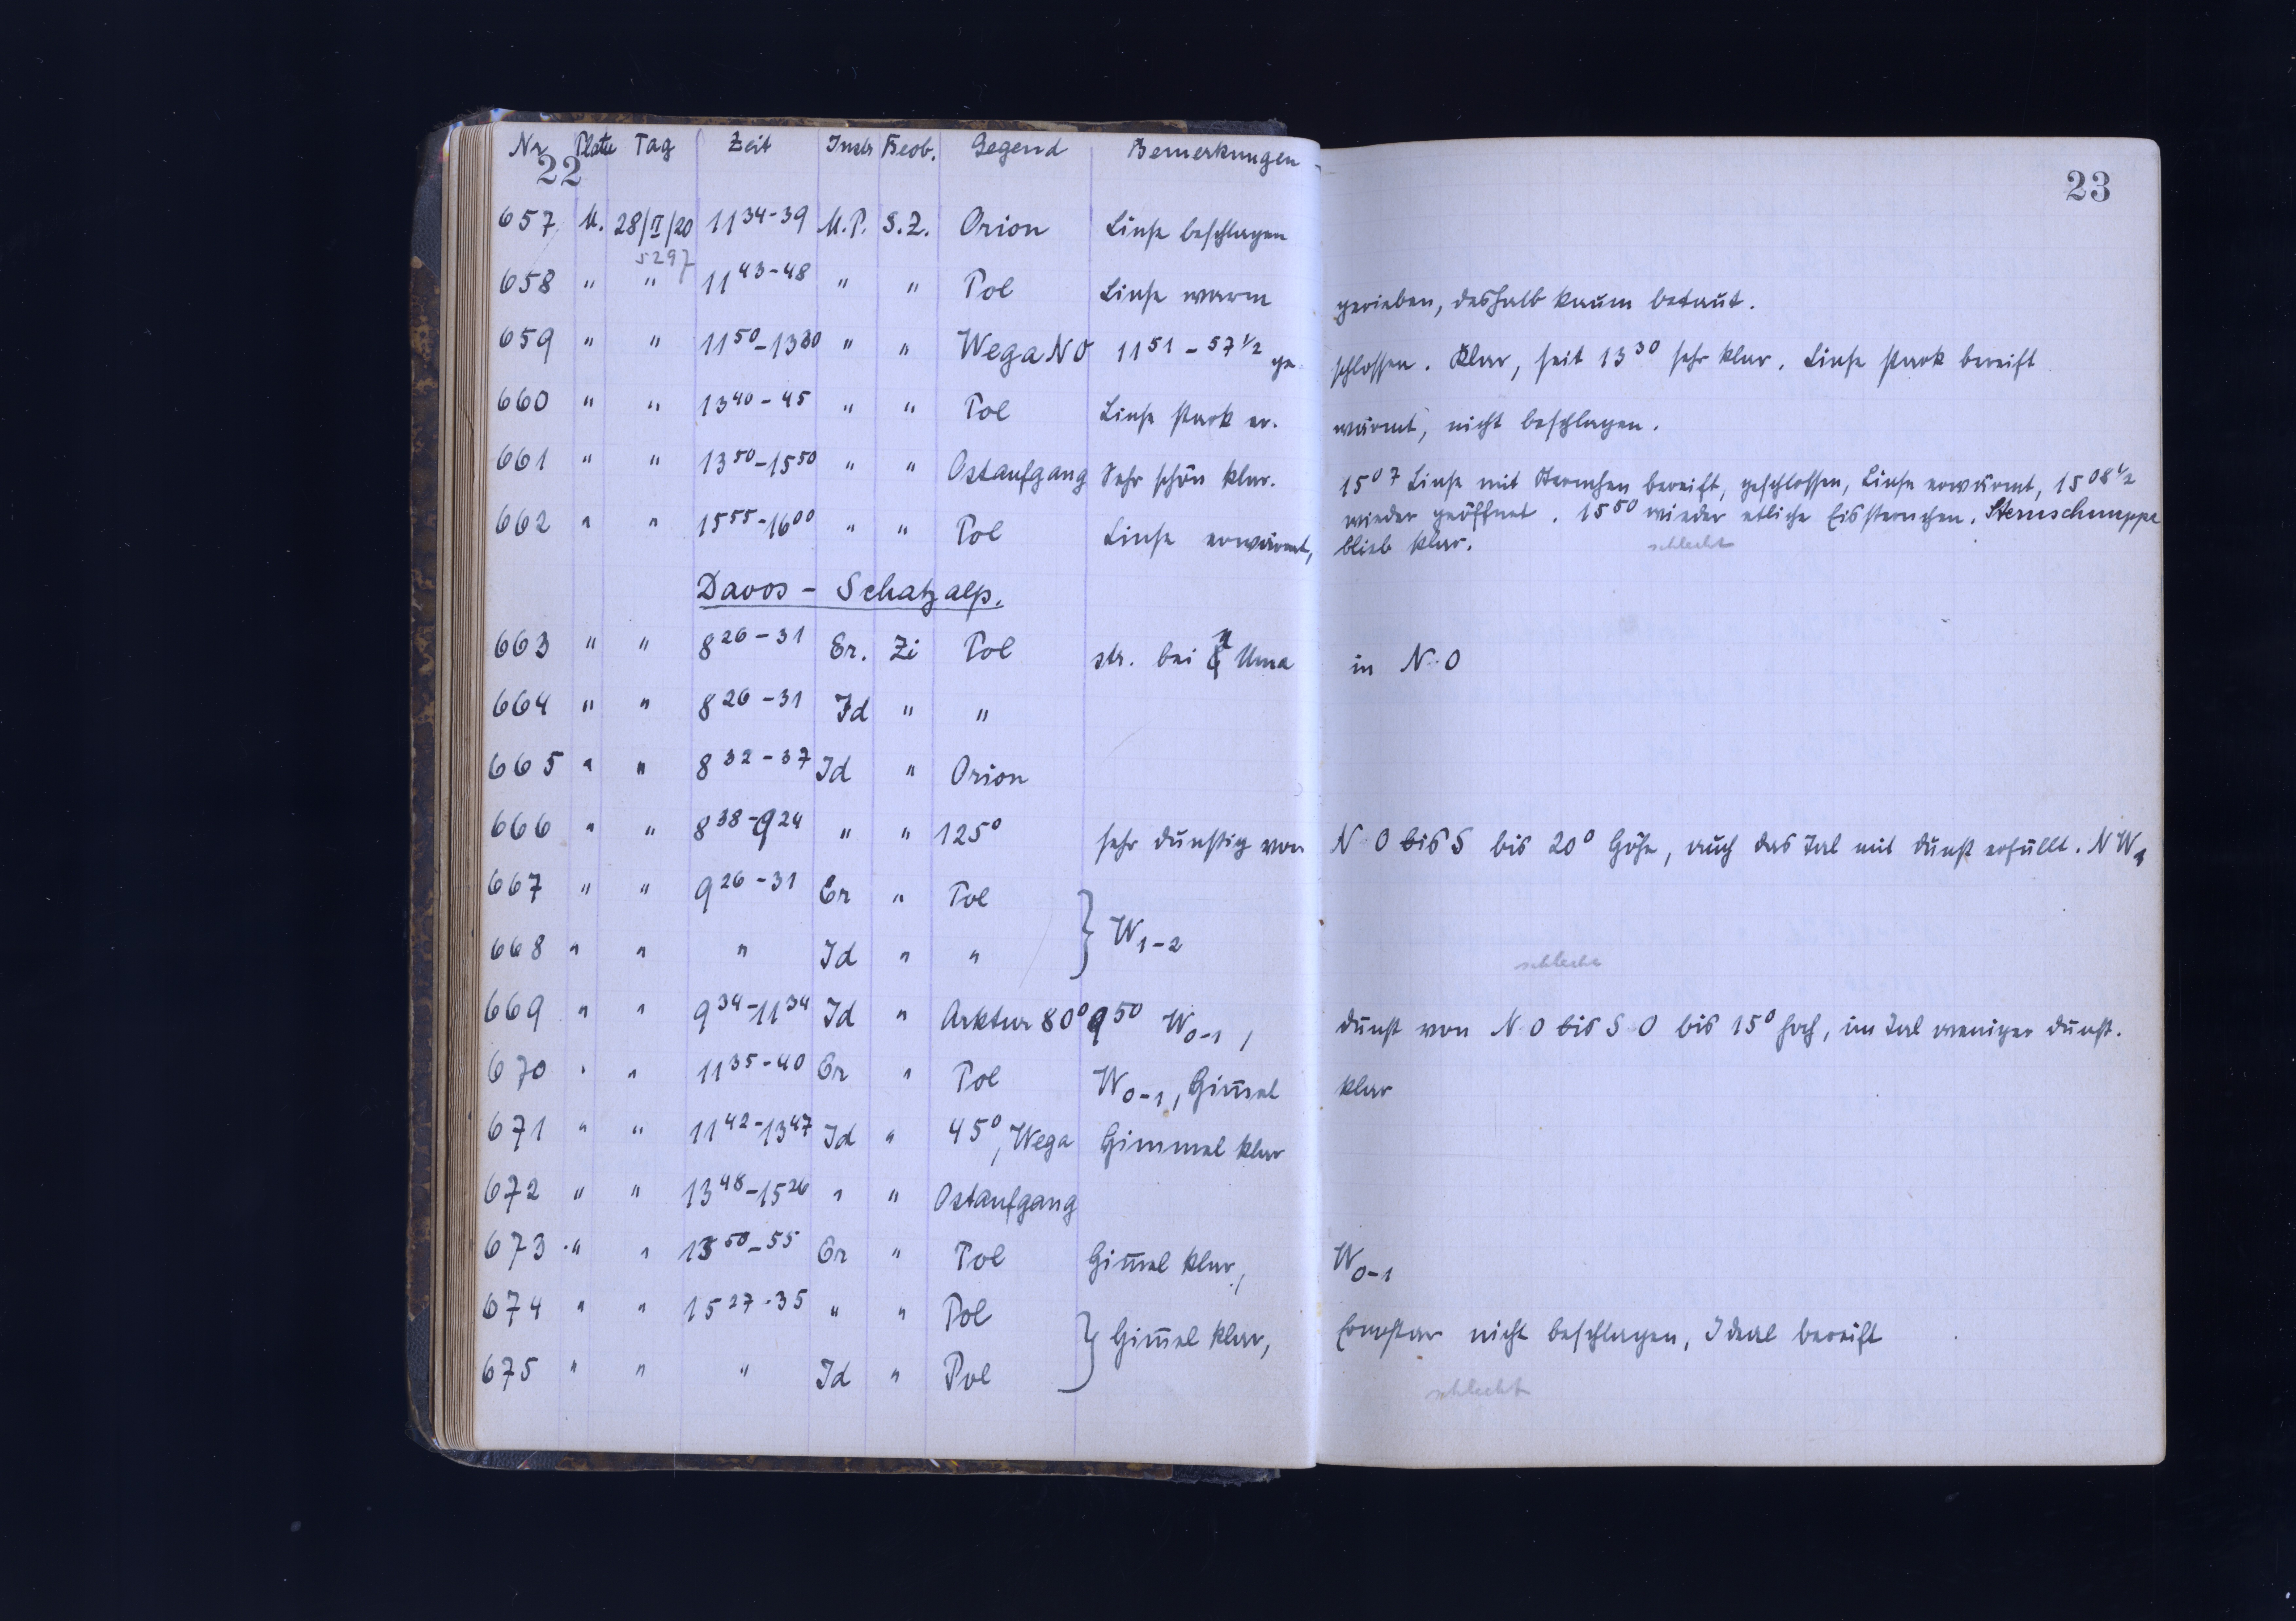 Nr Platte Tag Zeit Instr Beob. Gegend Bemerkungen
22
23
657 M. 28/II/20 11 34-39 M.P. S.Z. Orion Linse beschlagen
5297
658 " " 11 43-48 " " Pol Linse warm gerieben, deshalb kaum betaut.
659 " " 11 50-13 30 " " Wega NO 11 51 - 57 1/2 ge- schlossen. Klar, seit 13 30 sehr klar. Linse stark bereift
660 " " 13 40-45 " " Pol Linse stark er- wärmt, nicht beschlagen.
661 " " 13 50-15 50 " " Ostaufgang Sehr schön klar. 15 07 Linse mit Sternchen bereift, geschlossen, Linse erwärmt, 15 08 1/2
wieder geöffnet. 15 50 wieder etliche Eissternchen. Sternschnuppe
662 " " 15 55-16 00 " " Pol Linse erwärmt, blieb klar.
schlecht
Davos - Schatzalp.
663 " " 8 26-31 Er. Zi Pol str. bei η Uma in N.O
664 " " 8 26-31 Id " "
665 " " 8 32-37 Id " Orion
666 " " 8 38-9 24 " " 125° sehr dunstig von N.O bis S bis 20° Höhe, auch das Tal mit Dunst erfüllt. NW1
667 " " 9 26-31 Er " Pol
W1-2
668 " " " Id " "
schlecht
669 " " 9 34-11 34 Id " Arktur 80° 9 50 W0-1, Dunst von N.O bis S.O bis 15° hoch, im Tal weniger Dunst.
670 " " 11 35-40 Er " Pol W0-1, Him̅el klar
671 " " 11 42-13 47 Id " 45°, Wega Himmel klar
672 " " 13 48-15 26 " " Ostaufgang
673 " " 13 50-55 Er " Pol Him̅el klar, W0-1
674 " " 15 27-35 " " Pol
Him̅el klar, Ernostar nicht beschlagen, Ideal bereift
675 " " " Id " Pol
schlecht